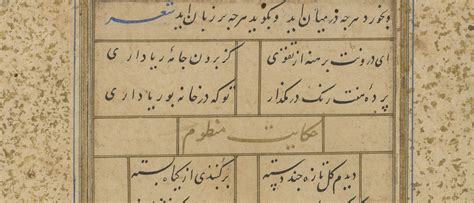 وبخورد هرچه در میان آید وبگوید هرچه بر زبان آید شعر
ای درونت برهنه از تقوی کز برون جامهٔ ریا داری
پردهٔ هفت رنگ در مگذار تو که در خانه بوریا داری
حکایت منظوم
دیدم گل تازه چند دسته بر گنبدی از گیاه بسته